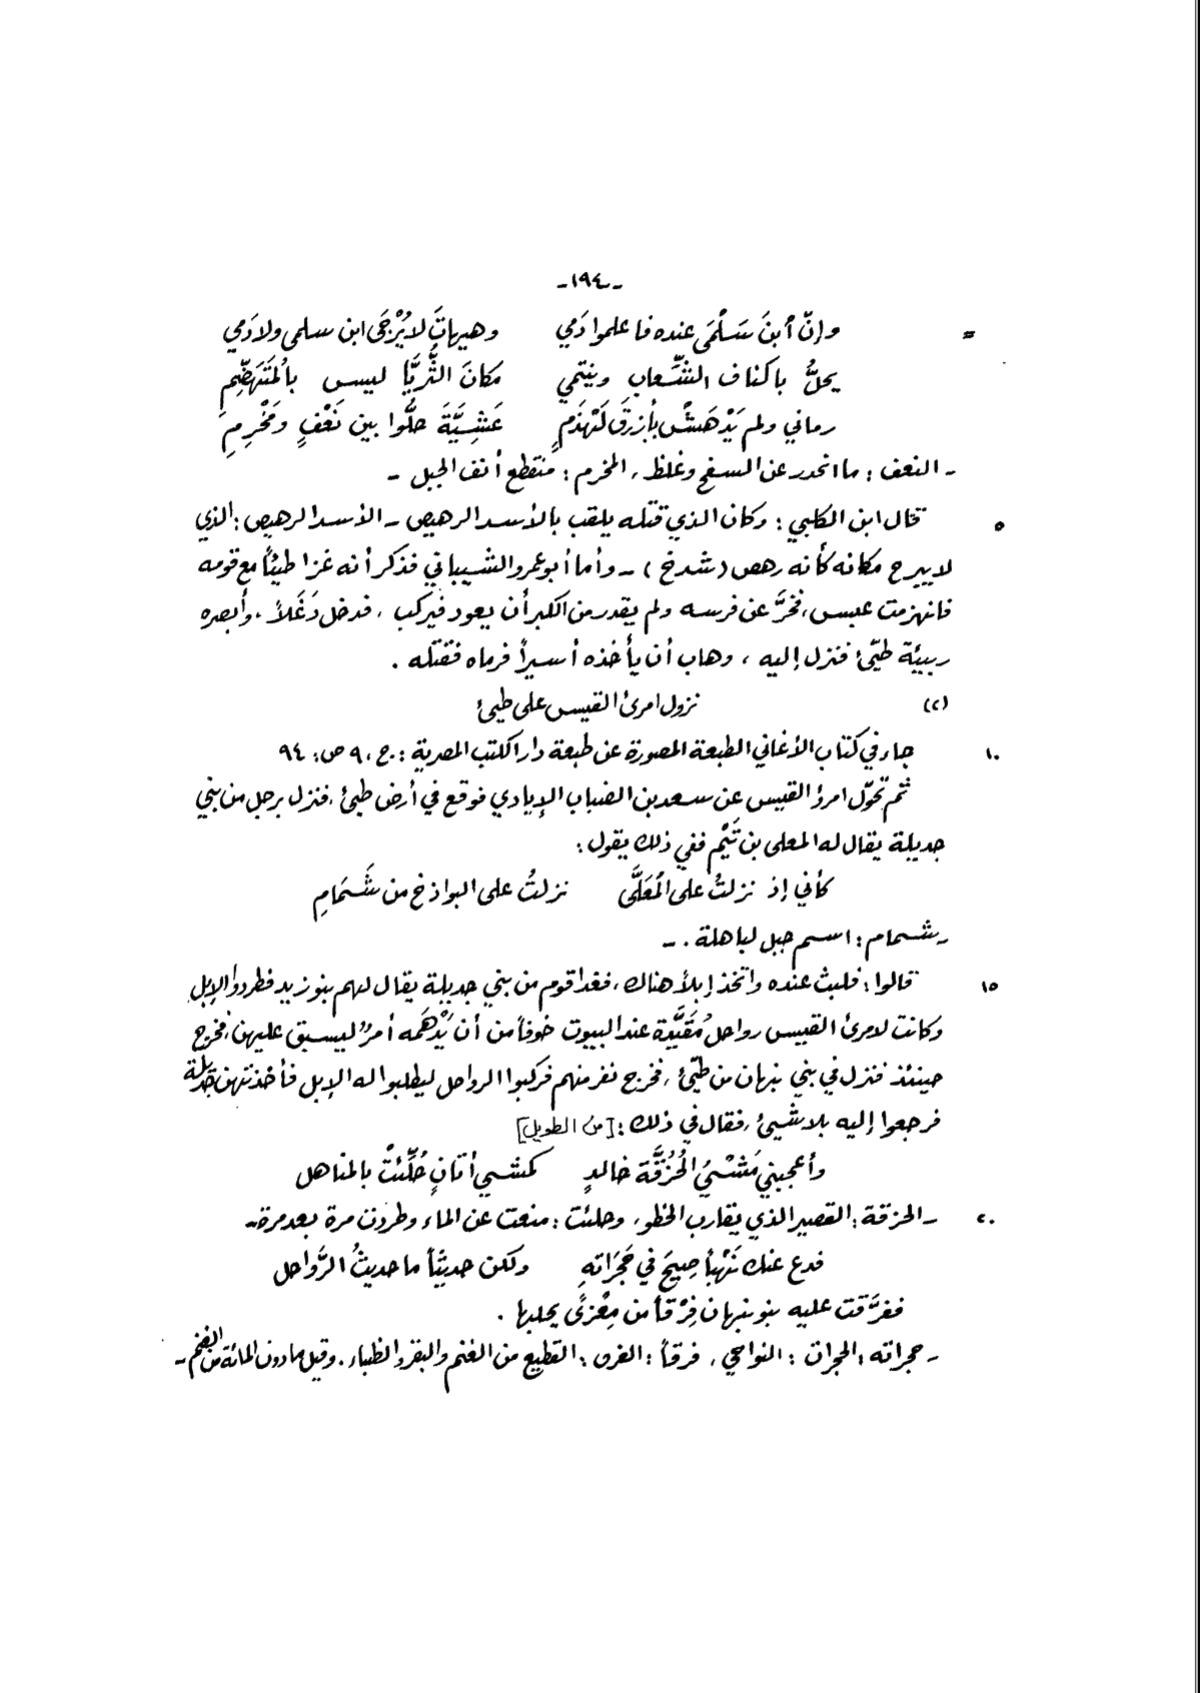 -١٩٤-
= وإنّ ٱبنَ سَلْمَى عنده فاعلموا دَمي وهيهاتَ لا يُرْجَى ابن سلمى ولا دَمي
يحلُّ بأكناف الشِّعاب وينتمي مكانَ الثُّريَّا ليس بالمُتَهَضِّمِ
رماني ولم يَدْهَشْ بأزرقَ لَهْذَمٍ عَشِيَّةَ حلُّوا بين نَعْفٍ ومَخْرِمِ
- النعف : ما انحدر عن السفح وغلظ ، المخرم : منقطع أنف الجبل -
٥ قال ابن الكلبي : وكان الذي قتله يلقب بالأسد الرهيص - الأسد الرهيص : الذي
لا يبرح مكانه كأنه رهص (شدخ) - وأما أبو عمرو الشيباني فذكر أنه غزا طيئاً مع قومه
فانهزمت عبس ، فخرَّ عن فرسه ولم يقدر من الكبر أن يعود فيركب ، فدخل دَغَلاً . وأبصره
ربيئة طيّئ فنزل إليه ، وهاب أن يأخذه أسيراً فرماه فقتله .
(٢) نزول امرئ القيس على طيئ
١٠ جاء في كتاب الأغاني الطبعة المصورة عن طبعة دار الكتب المصرية : ج ، ٩ ص : ٩٤
ثم تحوّل امرؤ القيس عن سعد بن الضباب الإيادي فوقع في أرض طيئ ، فنزل برجل من بني
جديلة يقال له المعلى بن تَيْم ففي ذلك يقول :
كأني إذ نزلتُ على المُعَلَّى نزلتُ على البواذخ من شَمَامِ
- شمام : اسم جبل لباهلة . -
١٥ قالوا : فلبث عنده واتخذ إبلاً هناك ، فغدا قوم من بني جديلة يقال لهم بنو زيد فطردوا الإبل
وكانت لامرئ القيس رواحل مُقَيَّدة عند البيوت خوفاً من أن يَدْهَمه أمرٌ ليسبق عليهن ، فخرج
حينئذ فنزل في بني نبهان من طيّئ ، فخرج نفر منهم فركبوا الرواحل ليطلبوا له الإبل فأخذتهن جديلة
فرجعوا إليه بلا شيئ ، فقال في ذلك : [من الطويل]
وأعجبني مَشْيُ الحُزُقَّة خالدٍ كمشي أتانٍ حُلِّئتْ بالمناهل
٢٠ - الحزقة : القصير الذي يقارب الخطو ، وحلئت : منعت عن الماء وطردت مرة بعد مرة -
فدع عنك نَهْباً صِيحَ في حَجَرَاتهِ ولكن حديثاً ما حديثُ الرَّواحل
ففرَّقت عليه بنو نبهان فِرْقاً من مِعْزىً يحلبها .
- حجراته : الحجرات : النواحي ، فرقاً : الفرق : القطيع من الغنم والبقر والظباء . وقيل ما دون المائة من الغنم -